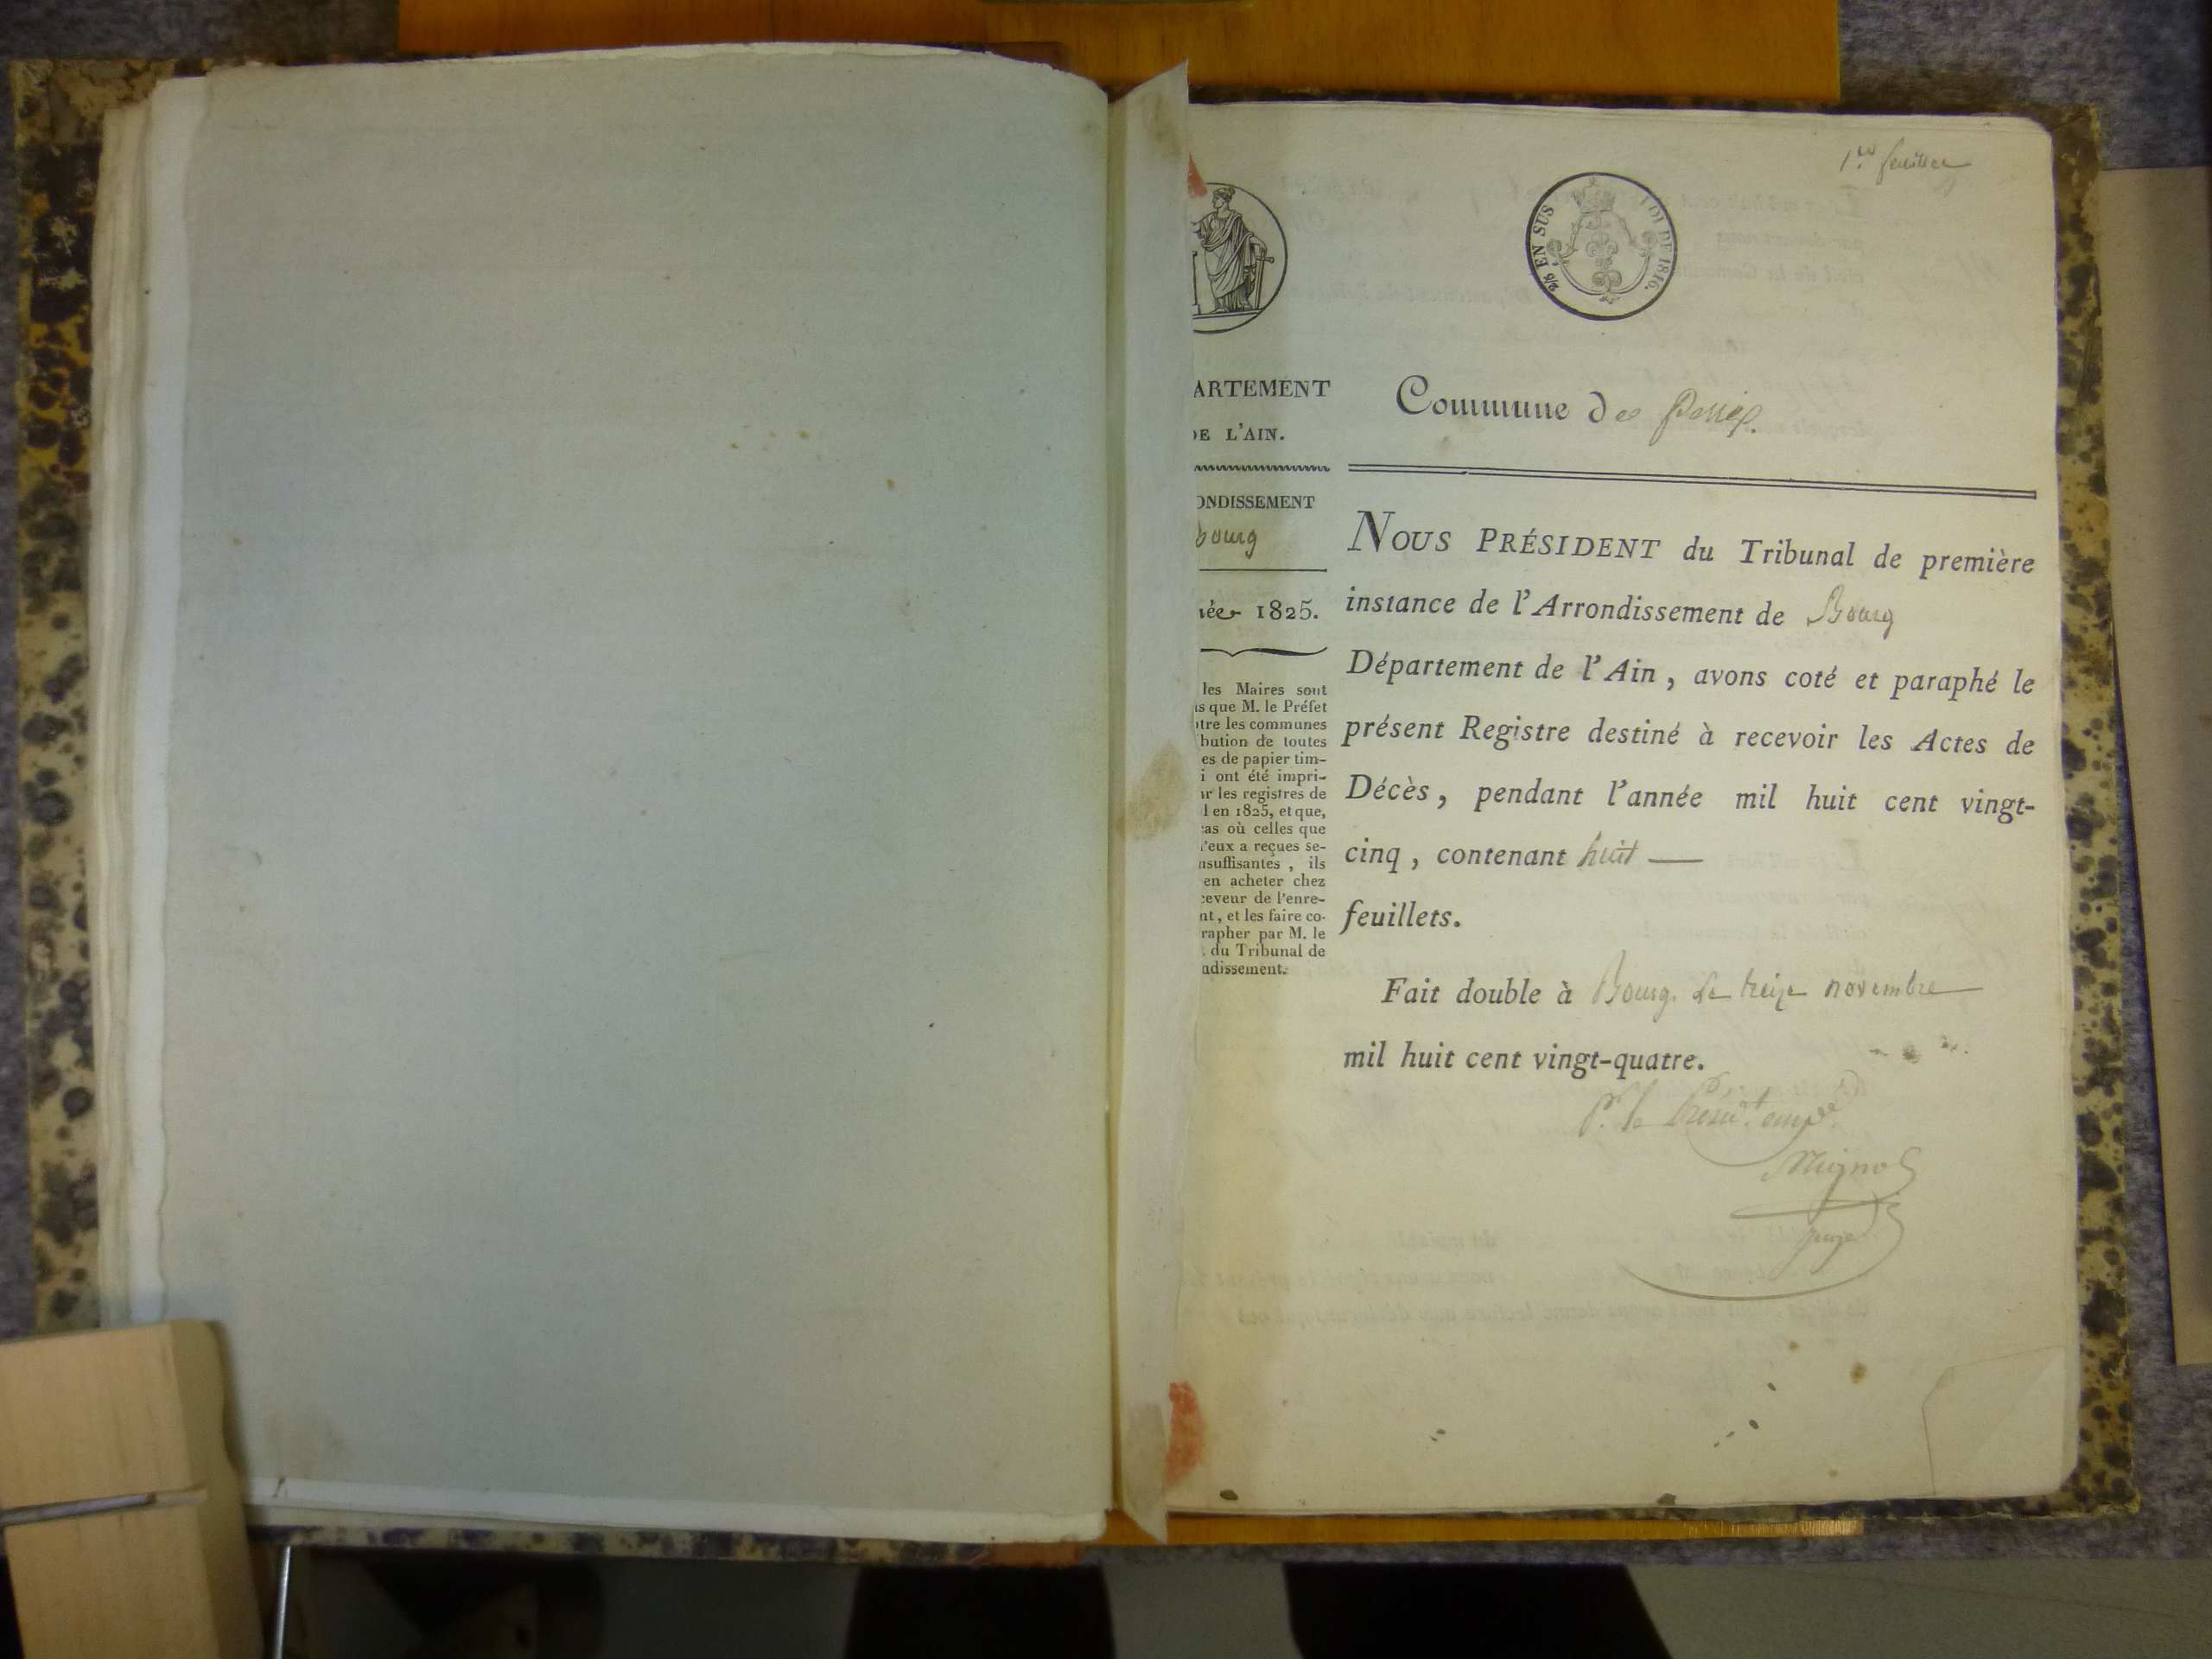 1er feuillet
2/5 EN SUS
LOI DE 1816.
ARTEMENT
DE L'AIN.
ONDISSEMENT
bourg
née 1825.
les Maires sont
is que M. le Préfet
tre les communes
bution de toutes
es de papier tim-
i ont été impri-
ur les registres de
l en 1825, et que,
cas où celles que
d'eux a reçues se-
nsuffisantes, ils
en acheter chez
ceveur de l'enre-
nt, et les faire co-
rapher par M. le
du Tribunal de
ndissement.
Commune de
NOUS PRÉSIDENT du Tribunal de première
instance de l'Arrondissement de Bourg
Département de l'Ain, avons coté et paraphé le
présent Registre destiné à recevoir les Actes de
Décès, pendant l'année mil huit cent vingt-
cinq, contenant huit —
feuillets.
Fait double à Bourg. le treize novembre
mil huit cent vingt-quatre.
P. le Présid.t emp.é
Mignot
Juge